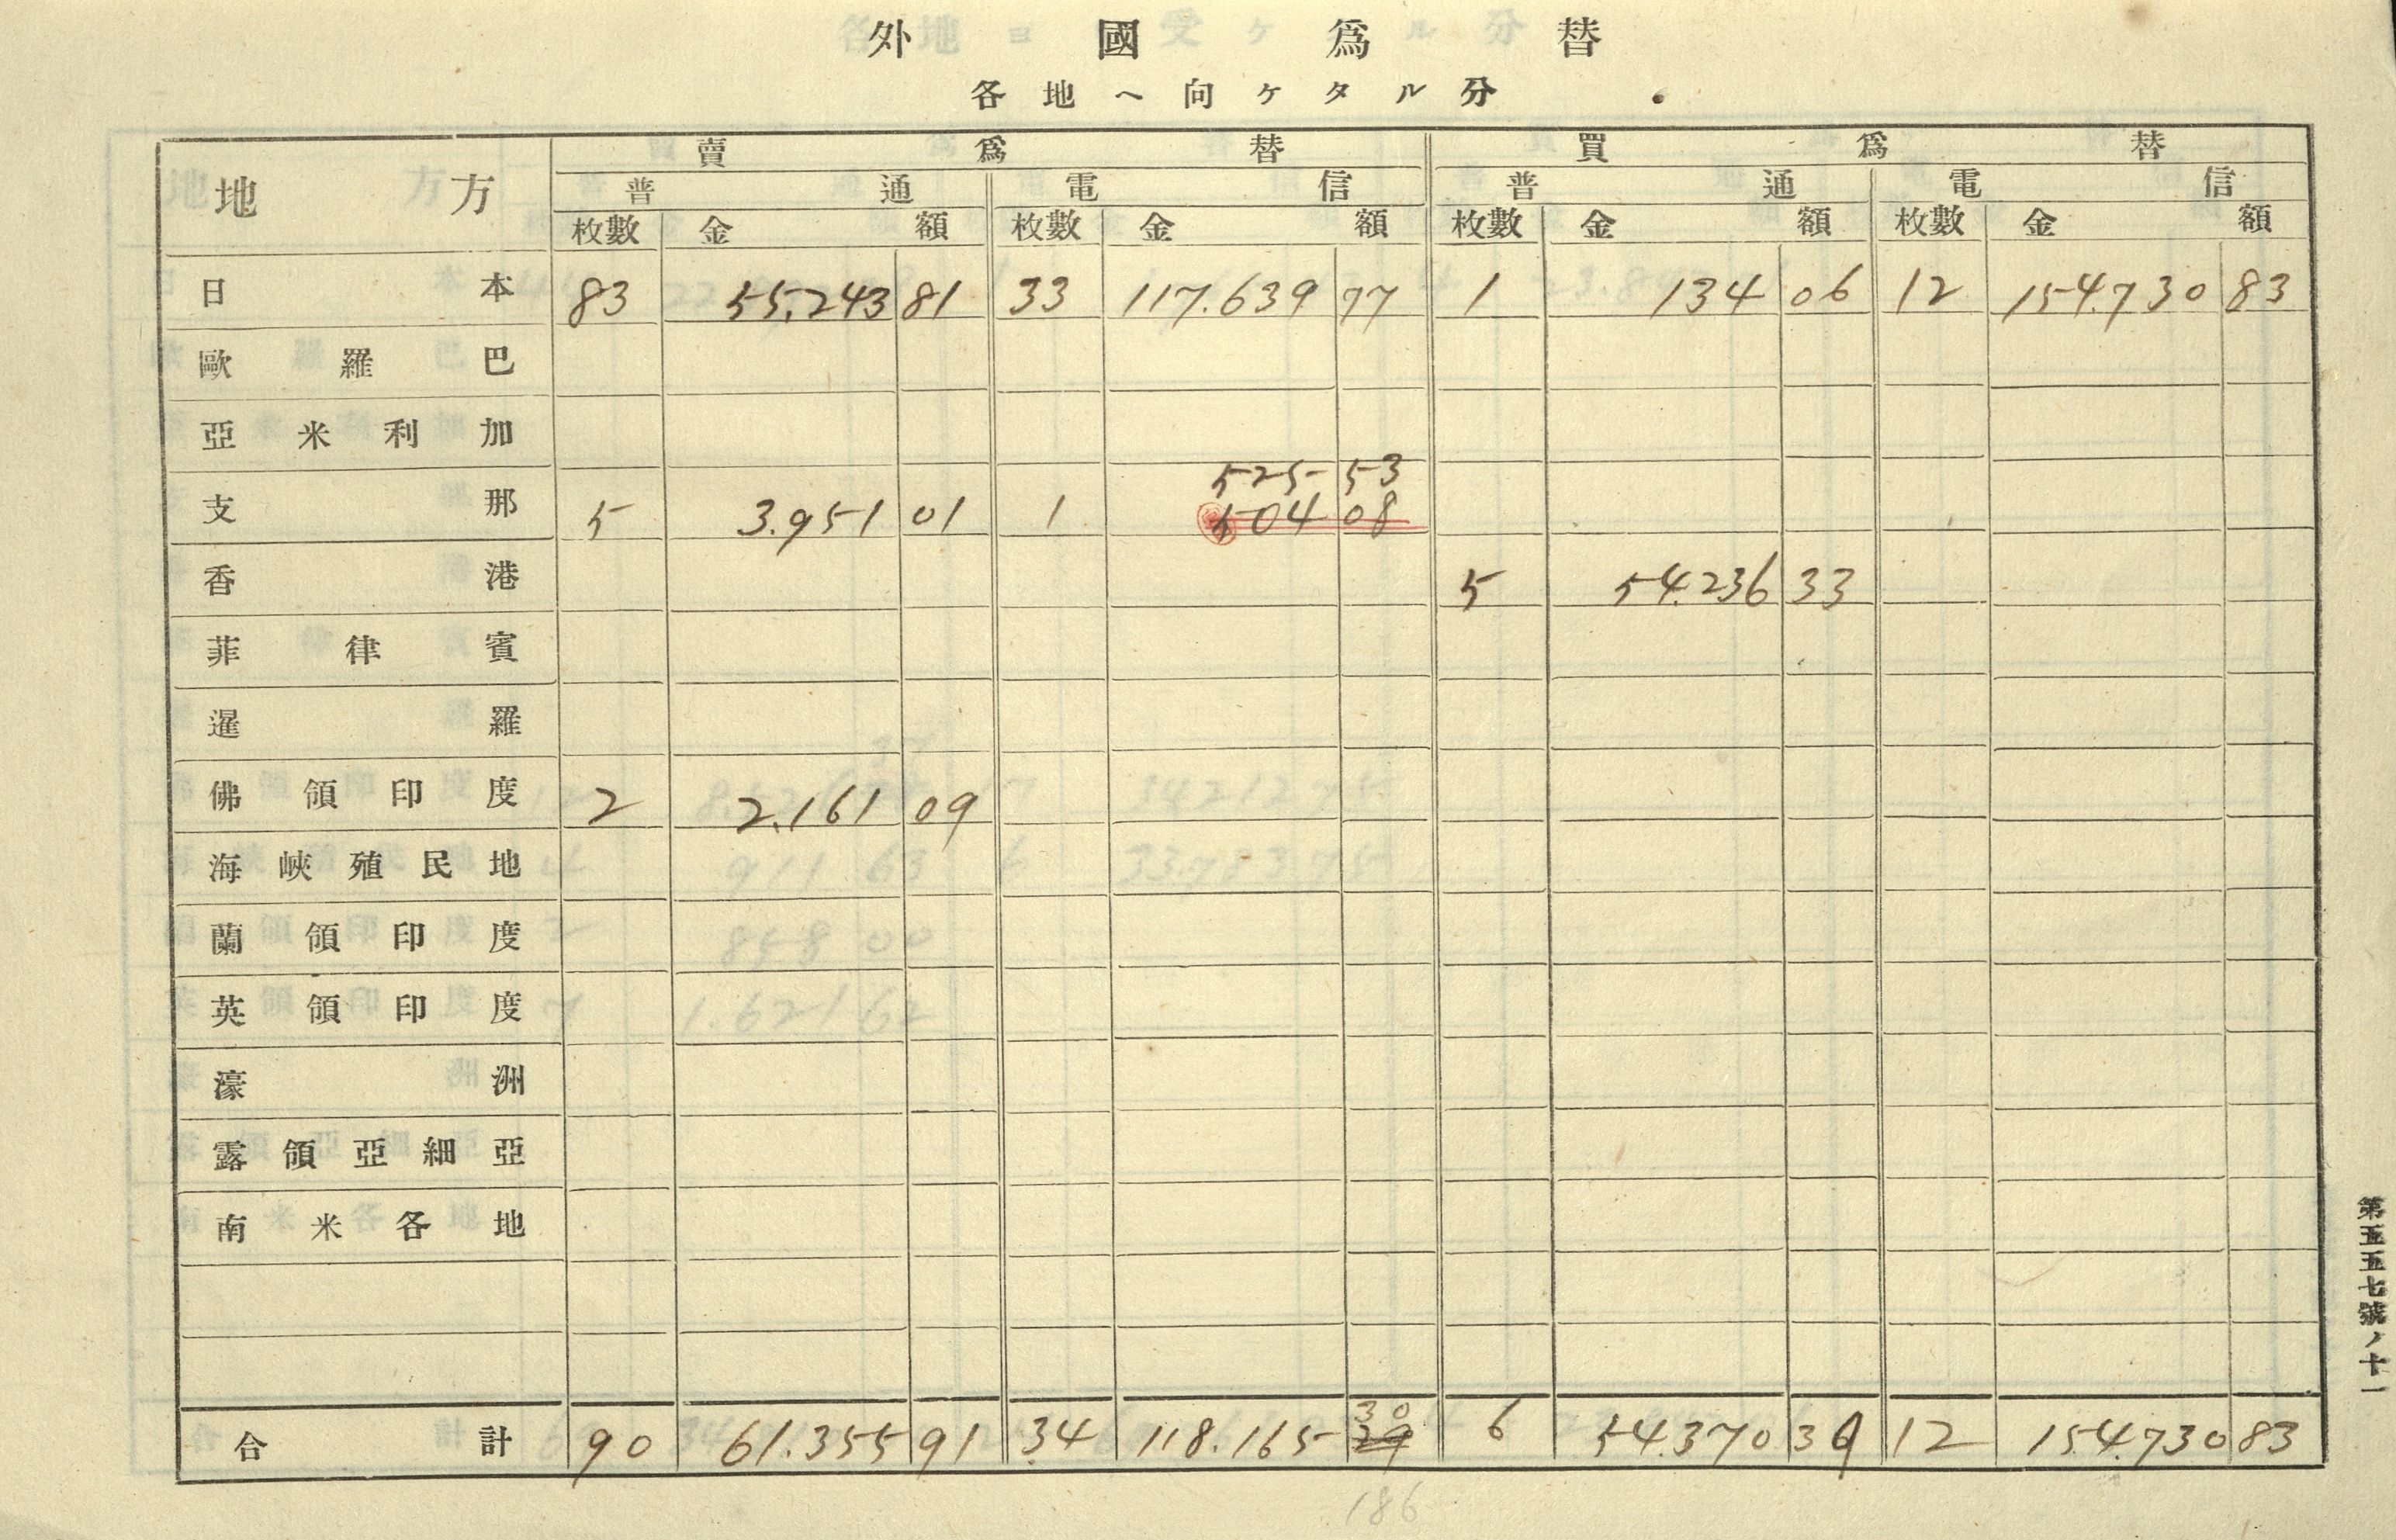 外國爲替
各地ヘ向ケタル分
地方 賣爲替 買爲替
普通 電信 普通 電信
枚數 金額 枚數 金額 枚數 金額 枚數 金額
日本 83 55,243 81 33 117.639 77 1 134 06 12 154.730 83
歐羅巴
亞米利加
525 53
支那 5 3.951 01 1 504 08
香港 5 54.236 33
菲律賓
暹羅
佛領印度 2 2.161 09
海峽殖民地
蘭領印度
英領印度
濠洲
露領亞細亞
南米各地
30
合計 90 61.355 91 34 118.165 29 6 54.370 39 12 154.730 83
186
第五五七號ノ十一